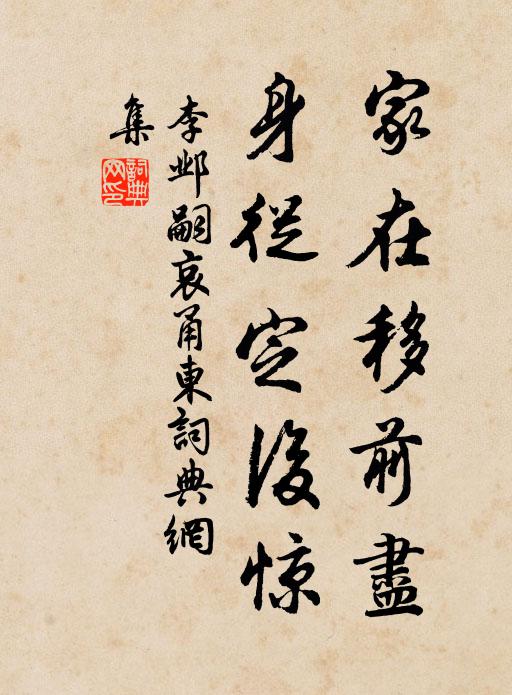 家在移前盡
身從定後惊
李邺嗣哀甬東詞典網
集
詞典網印